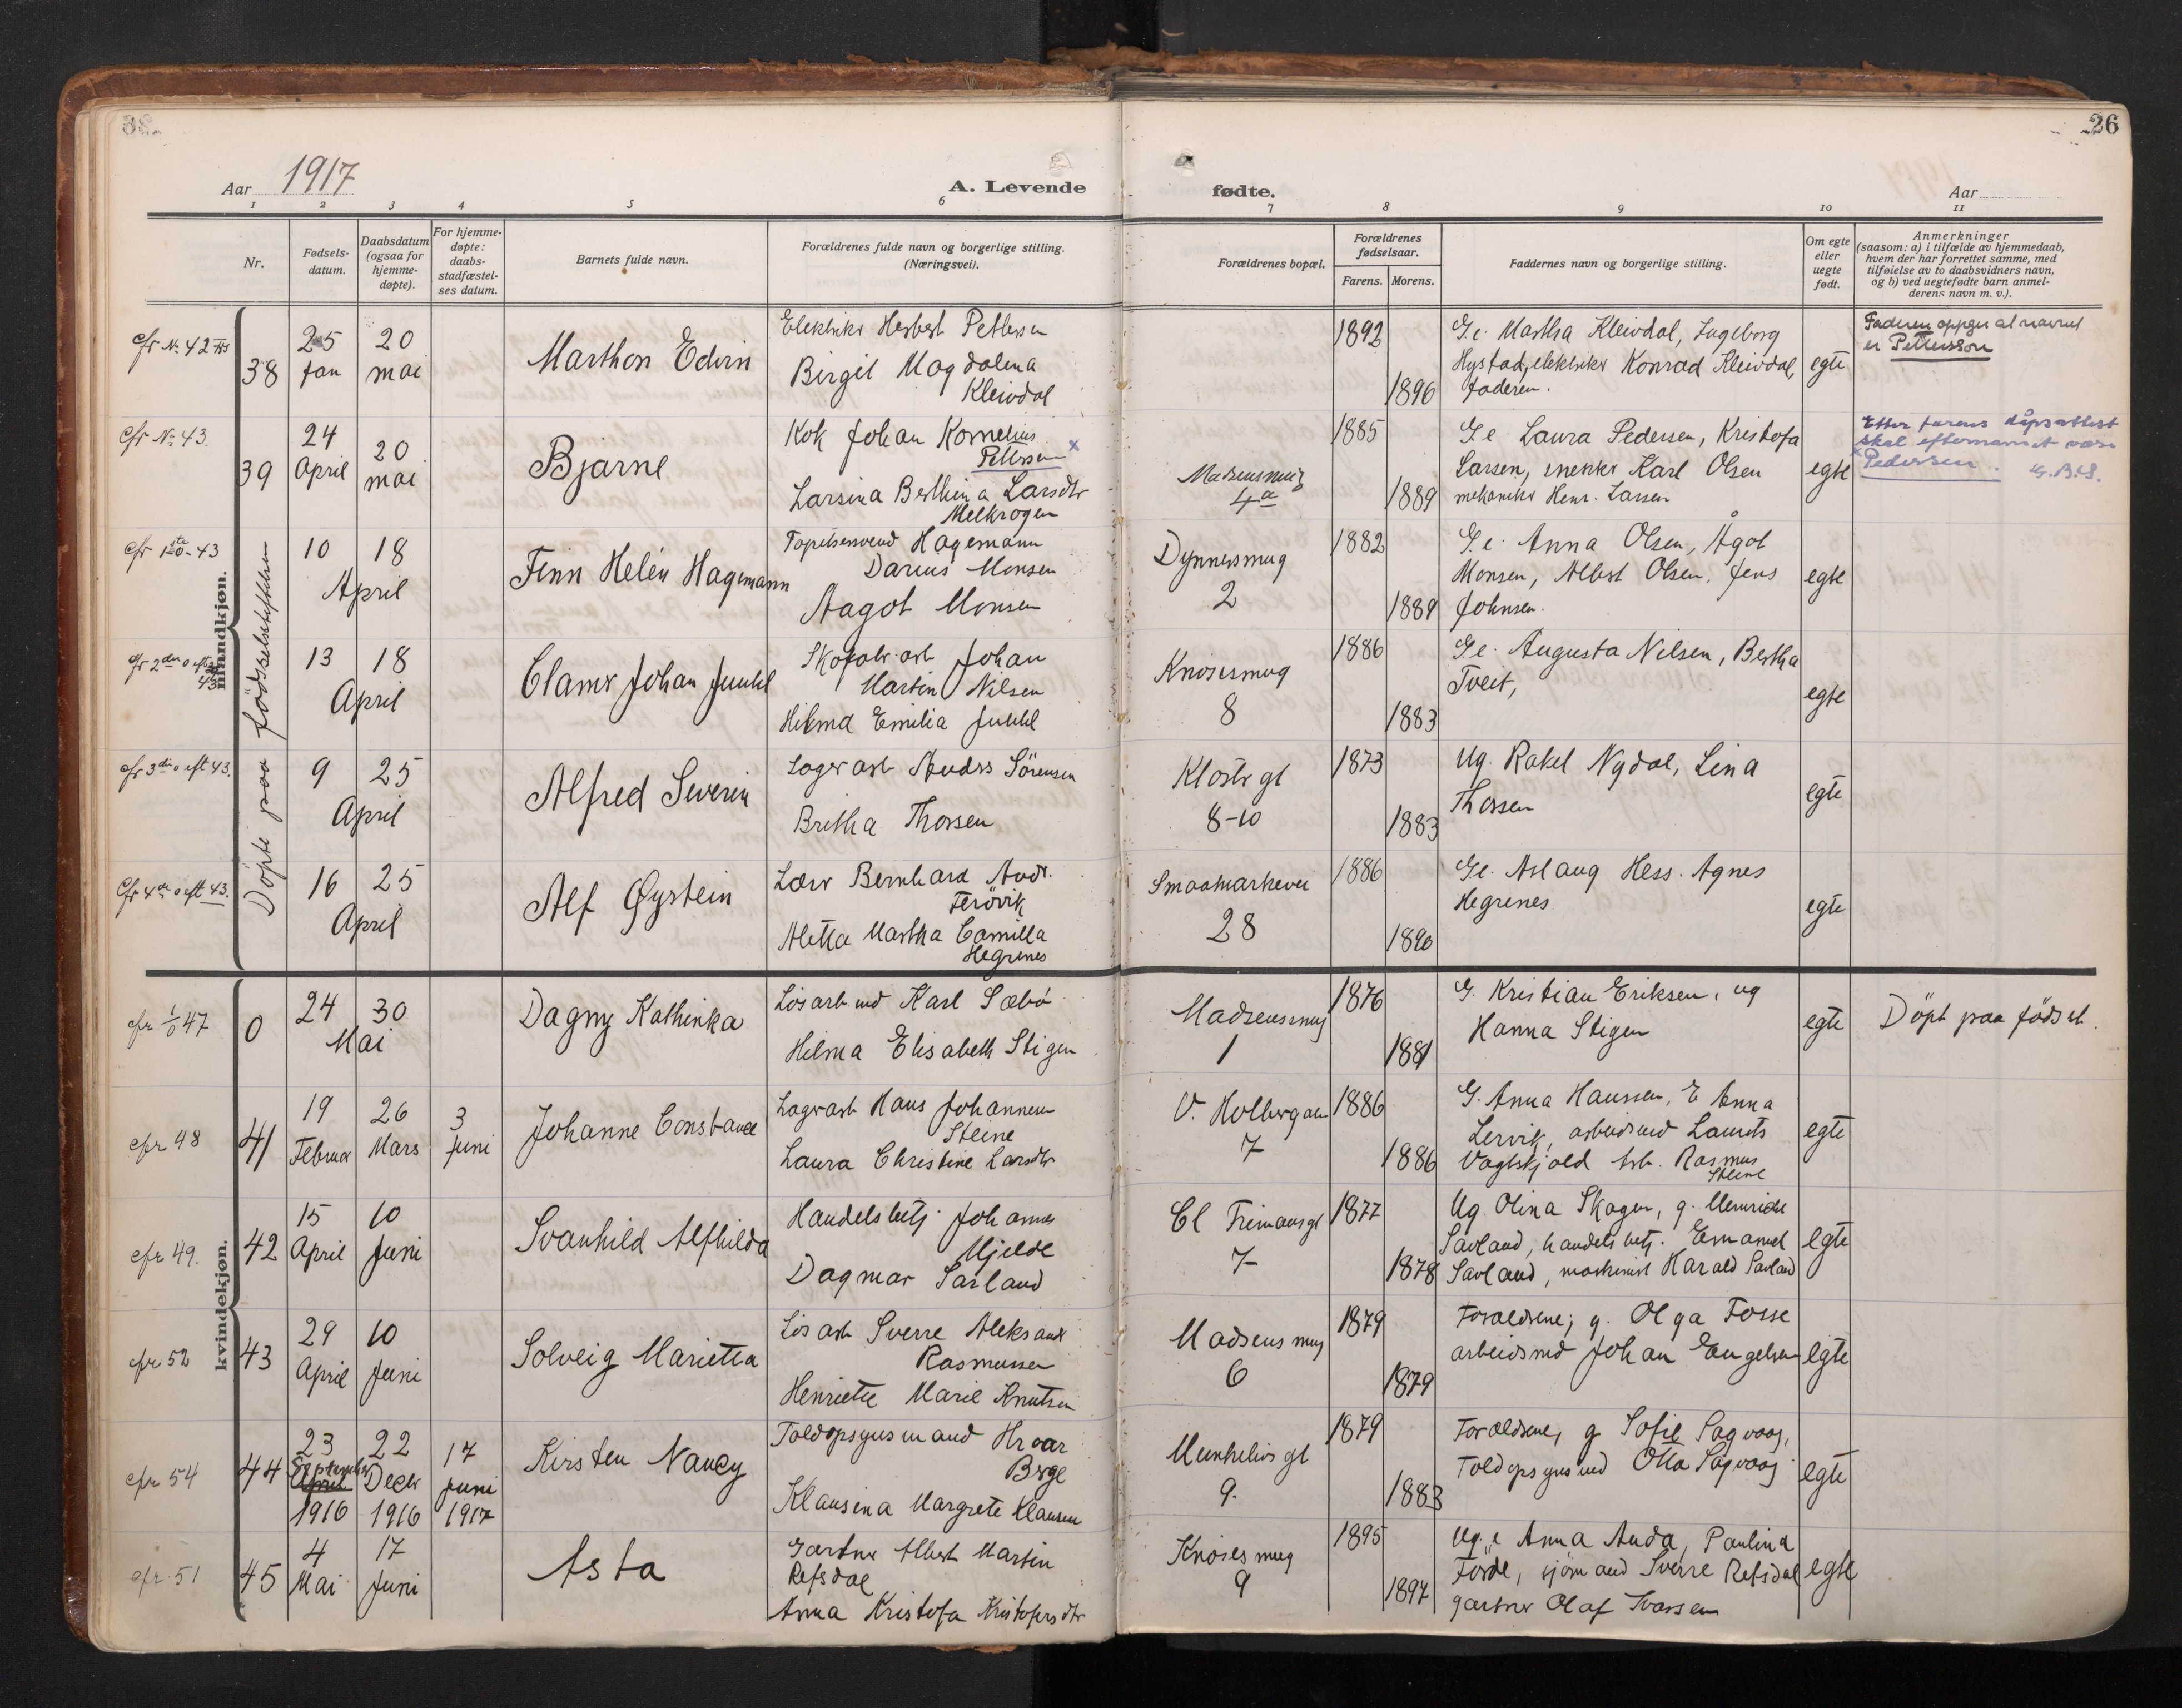 26
Aar 1917
A. Levende
fødte.
Aar
1 2 3 4 5 6 7 8 9 10 11
Nr.
Fødsels-
datum.
Daabsdatum
(ogsaa for
hjemme-
døpte).
For hjemme-
døpte:
daabs-
stadfæstel-
ses datum.
Barnets fulde navn.
Forældrenes fulde navn og borgerlige stilling.
(Næringsvei).
Forældrenes bopæl.
Forældrenes
fødselsaar.
Farens. Morens.
Faddernes navn og borgerlige stilling.
Om egte
eller
uegte
født.
Anmerkninger
(saasom: a) i tilfælde av hjemmedaab,
hvem der har forrettet samme, med
tilføielse av to daabsvidners navn,
og b) ved uegtefødte barn anmel-
derens navn m. v.).
mandkjøn.
Døpte paa fødselsstiftelsen
cfr No 42
38
25 Jan
20 mai
Marthon Edvin
Elektriker Herbert Pettersen
Birgit Magdalena
Kleivdal
1892
1896
G.e. Martha Kleivdal, Ingeborg
Hystad, elektriker Konrad Kleivdal,
faderen.
egte
Faderen oppger at navnet
er Pettersson
cfr No 43.
39
24 April
20 mai
Bjarne
Kok Johan Kornelius
Pettersen x
Larsina Berthina Larsdtr
Melkrogen
Madsensmug
4a
1885
1889
G.e. Laura Pedersen, Kristofa
Larsen, snekker Karl Olsen
mekaniker Henr. Larsen
egte
Etter farens dåpsattest
skal efternavnet være
x Pedersen. G.B.S.
cfr 1ste 0-43
10 18
April
Finn Helén Hagemann
Tapetsersvend Hagemann
Darius Monsen
Aagot Monsen
Dynnersmug
2
1882
1889
G.e. Anna Olsen, Ågot
Monsen, Albert Olsen, Jens
Johnsen.
egte
cfr 2den 0 eft 43
13 18
April
Clamer Johan Juuhl
Skofabr arb Johan
Martin Nilsen
Hilma Emilia Juuhl
Knøsesmug
8
1886
1883
G.e. Augusta Nilsen, Bertha
Tveit,
egte
cfr 3die 0 eft 43.
9 25
April
Alfred Severin
Lagerarb Anders Sörensen
Britha Thorsen
Kloster gt
8-10
1873
1883
Ug. Rakel Nydal, Lina
Thorsen
egte
Cfr 4de 0 eft 43.
16 25
April
Alf Øystein
Lærer Bernhard Andr.
Ferövik
Aletta Martha Camilla
Hegrenes
Smaamarkevei
28
1886
1890
G.e. Aslaug Hess. Agnes
Hegrenes
egte
kvindekjøn.
cfr 1/0 47
0
24 30
Mai
Dagny Kathinka
Lösarb.md Karl Sæbö
Hilma Elisabeth Stigen
Madsensmug
1
1876
1881
G. Kristian Eriksen, ug
Hanna Stigen
egte
Döpt paa föds st.
cfr 48
41
19 Februar
26 Mars
3 Juni
Johanne Constance
Lagerarb Hans Johannesen
Steine
Laura Christine Larsdtr
V. Holbergalm
7
1886
1886
G. Anna Hanssen, E Anna
Lervik, arbeidsmd Laurits
Vagtskjold arb. Rasmus
Steine
egte
cfr 49.
42
15 April
10 Juni
Svanhild Alfhilda
Handelsbetj. Johannes
Mjelde
Dagmar Savland
Cl Frimansgt
7
1877
1878
Ug. Olina Skagen, g. Henriette
Savland, handels betj. Emanuel
Savland, maskinist Harald Savland
egte
cfr 52
43
29 April
10 Juni
Solveig Marietta
Lös arb Sverre Aleksander
Rasmussen
Henriette Marie Knutsen
Madsens mug
6
1879
1879
Forældrene; g. Olga Fosse
arbeidsmd Johan Engelsen
egte
cfr 54
44
23 September
April
1916
22 Decbr
1916
17 Juni
1917
Kirsten Nancy
Toldopsynsmand Hroar
Berge
Klausina Margrete Klausen
Munkelivs gt
9.
1879
1883
Forældrene, g Sofie Sagvaag,
Toldopsynsmd Otto Sagvaag
egte
cfr 51
45
4 Mai
17 Juni
Asta
Gartner Albert Martin
Refsdal
Anna Kristofa Kristofersdtr
Knöses mug
9
1895
1897
Ug.e Anna Auda, Paulina
Förde, sjömand Sverre Refsdal
gartner Olaf Ivarsen
egte